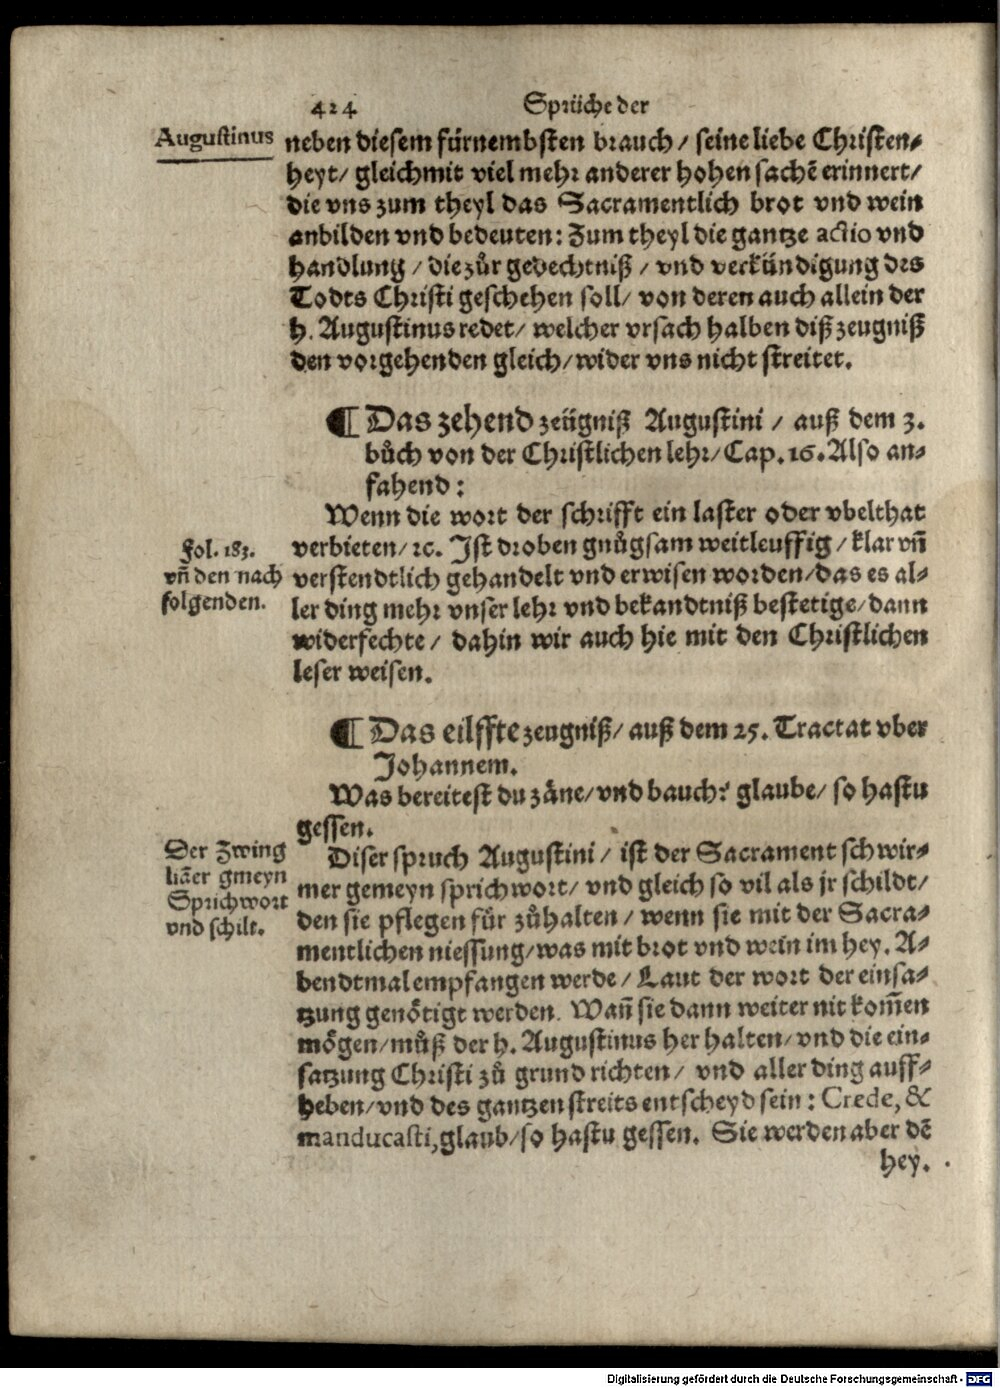 424
Sprüche der
Augustinus
neben diesem fürnembsten brauch / seine liebe Christen⸗
heyt / gleich mit viel mehr anderer hohen sachē erinnert /
die vns zum theyl das Sacramentlich brot vnd wein
anbilden vnd bedeuten: Zum theyl die gantze actio vnd
handlung / die zůr gedechtniß / vnd verkündigung des
Todts Christi geschehen soll / von deren auch allein der
h. Augustinus redet / welcher vrsach halben diß zeugniß
den vorgehenden gleich / wider vns nicht streitet.
¶ Das zehend zeügniß Augustini / auß dem 3.
bůch von der Christlichen lehr / Cap. 16. Also an⸗
fahend:
Wenn die wort der schrifft ein laster oder vbelthat
Fol. 183.
vñ den nach
folgenden.
verbieten / ꝛc. Ist droben gnůgsam weitleuffig / klar vñ
verstendtlich gehandelt vnd erwisen worden / das es al⸗
ler ding mehr vnser lehr vnd bekandtniß bestetige / dann
widerfechte / dahin wir auch hie mit den Christlichen
leser weisen.
¶ Das eilffte zeugniß / auß dem 25. Tractat vber
Johannem.
Was bereitest du zäne / vnd bauch? glaube / so hastu
gessen.
Der Zwing
liāer gmeyn
Sprichwort
vnd schilt.
Diser spruch Augustini / ist der Sacrament schwir⸗
mer gemeyn sprichwort / vnd gleich so vil als jr schildt /
den sie pflegen für zůhalten / wenn sie mit der Sacra⸗
mentlichen niessung / was mit brot vnd wein im hey. A⸗
bendtmal empfangen werde / Laut der wort der einsa⸗
tzung genötigt werden. Wañ sie dann weiter nit kom̃en
mögen / můß der h. Augustinus her halten / vnd die ein⸗
satzung Christi zů grund richten / vnd aller ding auff⸗
heben / vnd des gantzen streits entscheyd sein: Crede, &
manducasti, glaub / so hastu gessen. Sie werden aber dē
hey.
Digitalisierung gefördert durch die Deutsche Forschungsgemeinschaft - DFG